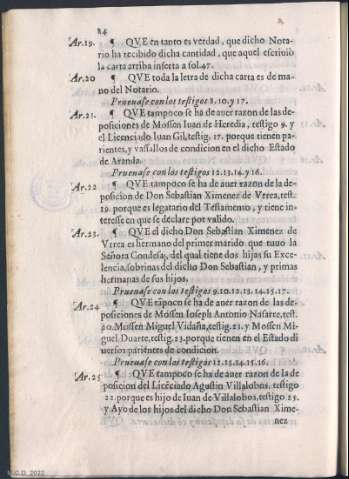 24
Ar.19. ¶ QVE en tanto es verdad, que dicho Nota-
rio ha recibido dicha cantidad, que aquel escriuio
la carta arriba inserta a fol.47.
Ar.20 ¶ QVE toda la letra de dicha carta es de ma-
no del Notario.
Prueuase con los testigos 3.10.y 17.
Ar.21. ¶ QVE tampoco se ha de auer razon de las de-
posiciones de Mossen Iuan de Heredia, testigo 9. y
el Licenciado Iuan Gil, testig. 17. porque tienen pa-
rientes, y vassallos de condicion en el dicho Estado
de Aranda.
Prueuase con los testigos 12.13.14.y 16.
Ar.22 ¶ QVE tampoco se ha de auer razon de la de-
posicion de Don Sebastian Ximenez de Vrrea, test.
19. porque es legatario del Testamento, y tiene in-
teresse en que se declare por valido.
Ar.23. ¶ QVE el dicho Don Sebastian Ximenez de
Vrrea es hermano del primer marido que tuuo la
Señora Condesa, del qual tiene dos hijas su Exce-
lencia, sobrinas del dicho Don Sebastian, y primas
hermanas de sus hijos.
Prueuase con los testigos 9.10.12.13.14.15.17.
Ar.24 ¶ QVE tãpoco se ha de auer razon de las de-
posiciones de Mossen Ioseph Antonio Nauarre, test.
20. Mossen Miguel Vidaña, testig.21. y Mossen Mi-
guel Duarte, testig.23. porque tienen en el Estado di
uersos parientes de condicion.
Prueuase con los testigos 12.13.14.15.16.
Ar.25 ¶ QVE tampoco se ha de auer razon de la de
posicion del Licẽciado Agustin Villalobos, testigo
22. porque es hijo de Iuan de Villalobos, testigo 25.
y Ayo de los hijos del dicho Don Sebastian Xime-
nez
2022